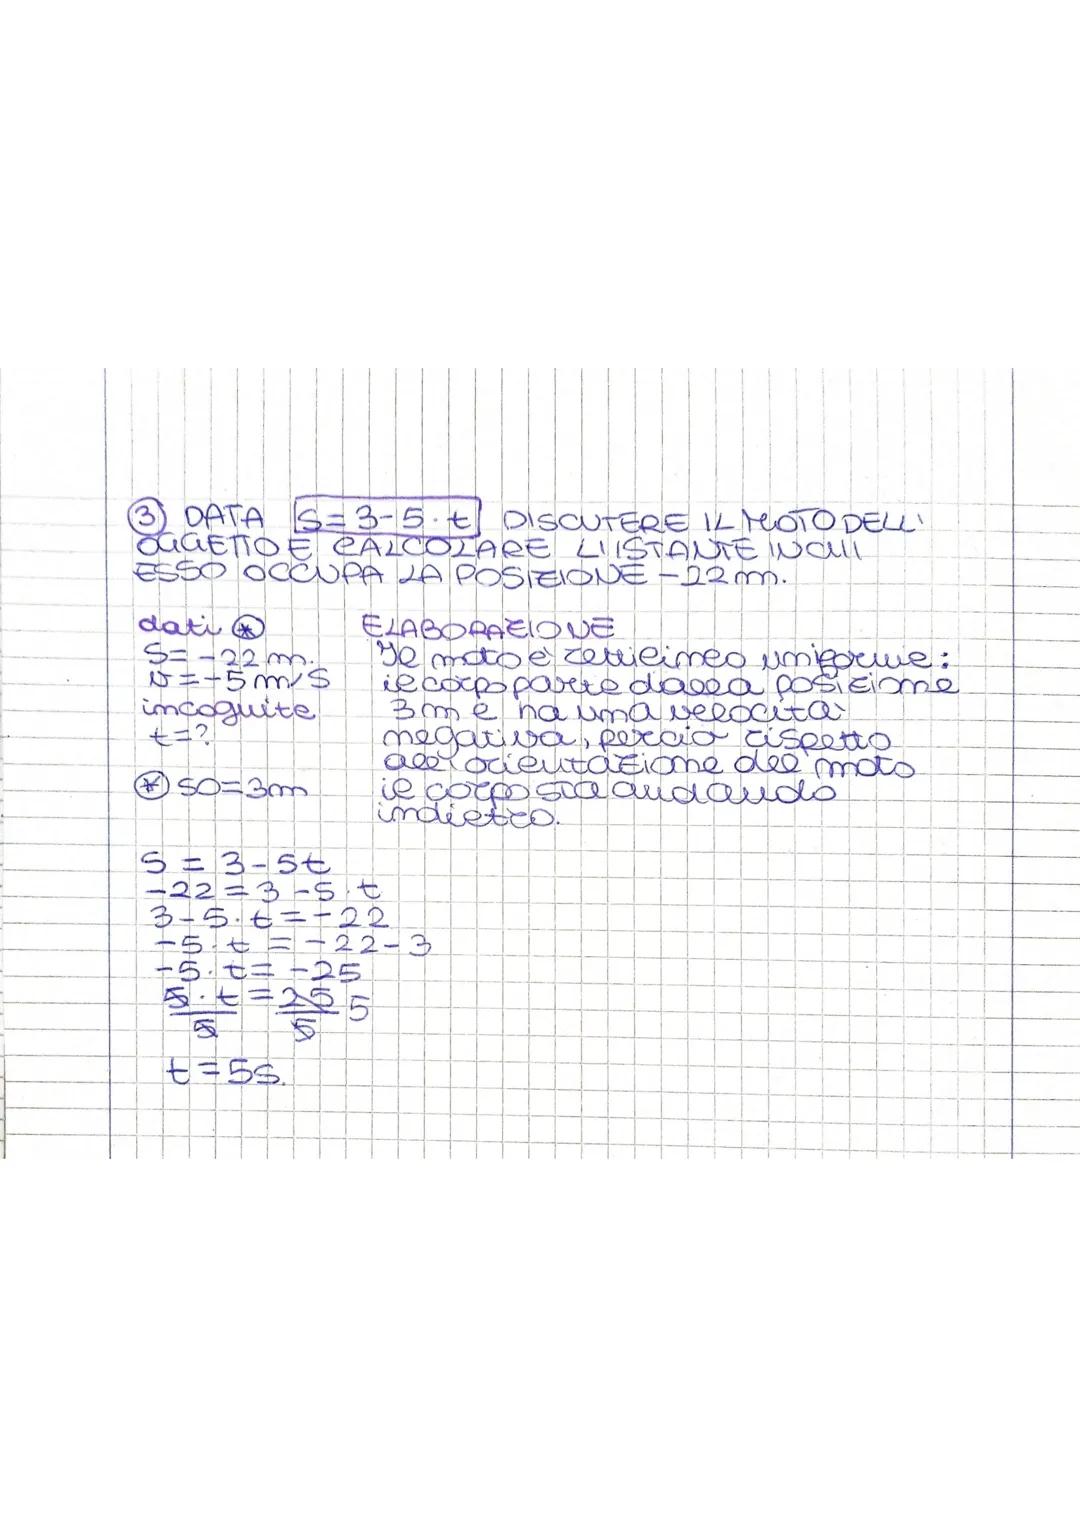 ③ DATA S=3-5·t DISCUTERE IL MOTO DELL'
OGGETTO E CALCOLARE L'ISTANTE IN CUI
ESSO OCCUPA LA POSIZIONE -22 m.
dati ⊛
S=-22 m.
v=-5 m/s
incognite
t=?
⊛ S0=3m
ELABORAZIONE
Il moto è rettilineo uniforme:
il corpo parte dalla posizione
3m e ha una velocità
negativa, perciò rispetto
all'orientazione del moto
il corpo sta andando
indietro.
S = 3-5t
-22=3-5·t
3-5·t=-22
-5·t = -22-3
-5·t=-25
5·t=25 5
5 5
t=5s.